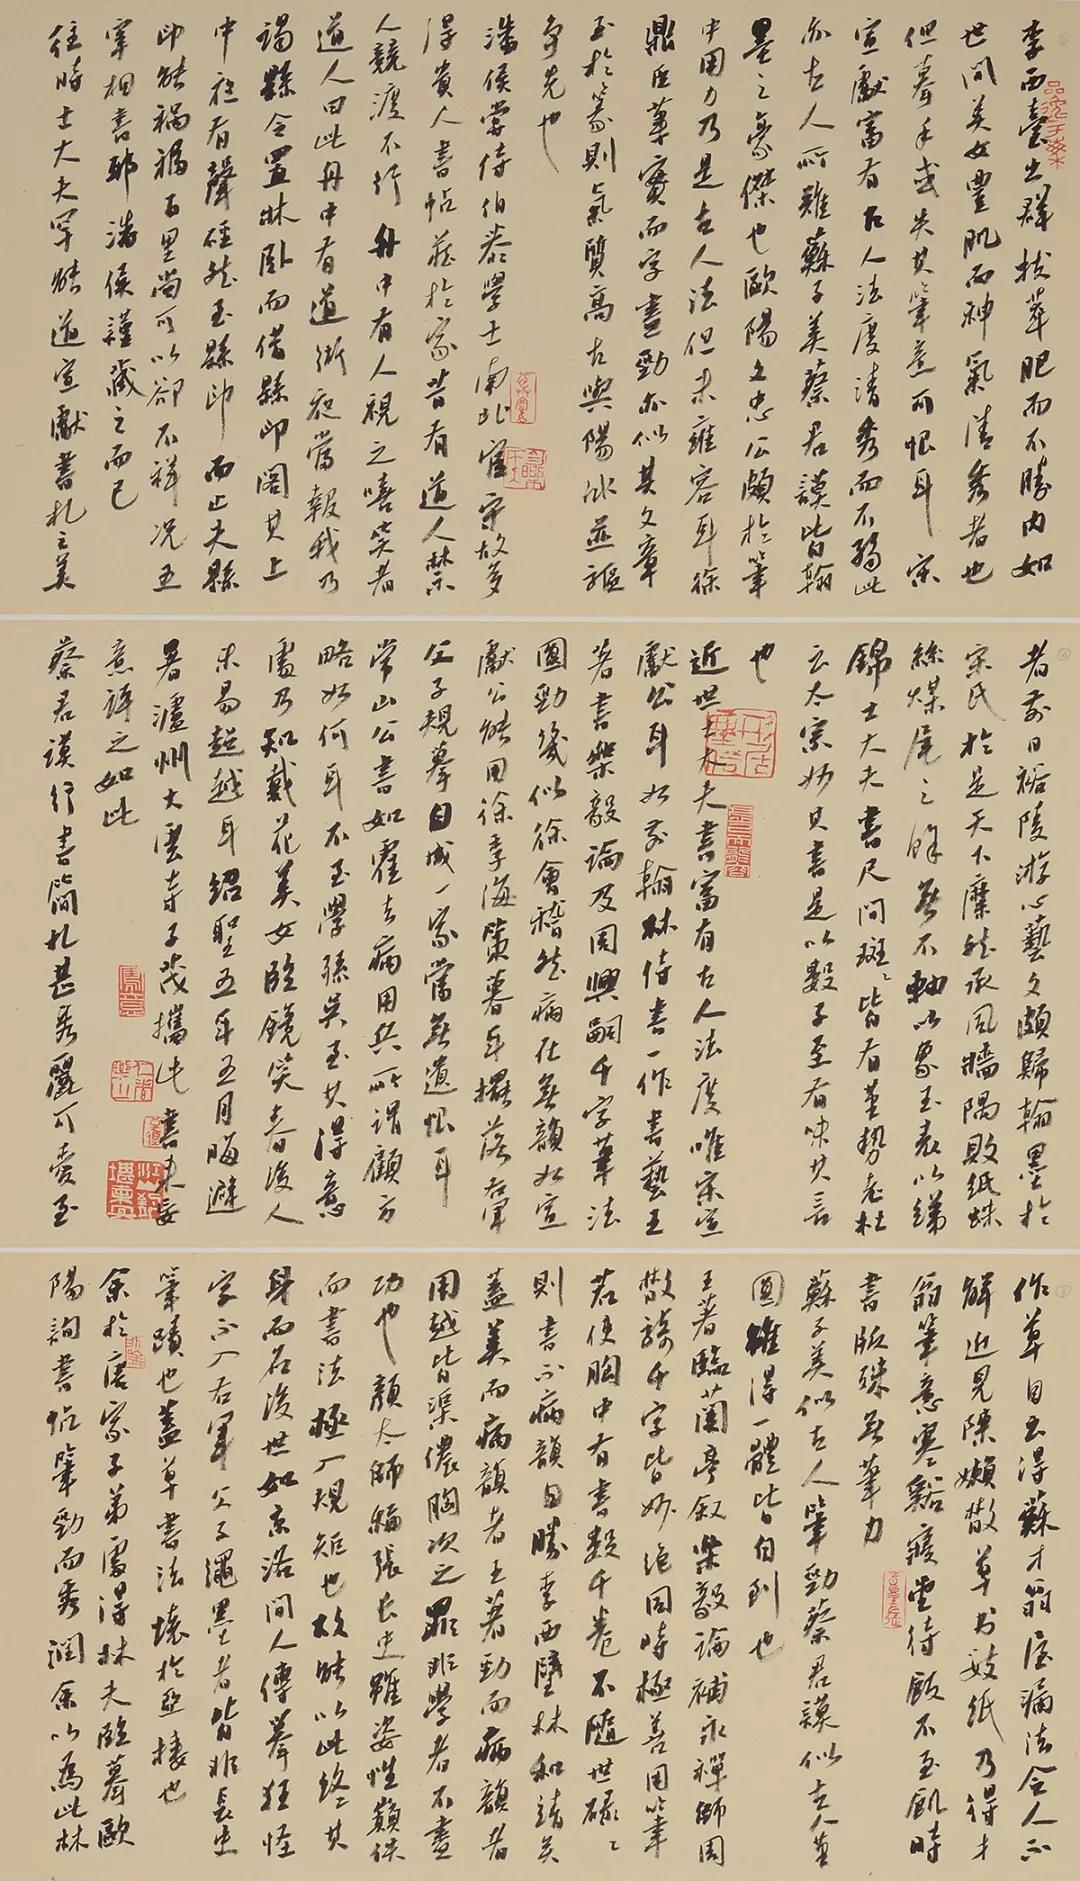 李西臺出群拔萃肥而不勝肉如
世間美女豐肌而神氣清秀者也
但摹手或失其筆意可恨耳宋
宣獻富有古人法度清秀而不弱此
亦古人所難蘇子美蔡君謨皆翰
墨之豪傑也歐陽文忠公頗於筆
中用力乃是古人法但未雍容耳徐
鼎臣筆實而字畫勁亦似其文章
至於篆則氣質高古與陽冰並驅
爭先也
潘侯嘗侍伯恭學士南北官守故多
得貴人書帖藏於家昔有道人禁
人競渡不行舟中有人視之嘻笑者
道人曰此舟中有道術夜當報我乃
謁縣令置牀臥而借縣印閣其上
中夜有聲硑然至縣印而止夫縣
印能禍禍百里尚可以卻不祥況五
宰相書耶潘侯謹藏之而已
往時士大夫罕能道宣獻書札之美
者前日裕陵游心藝文頗歸翰墨於
宋氏於是天下靡然承風牆隅敗紙蛛
絲煤尾之餘無不軸以象玉表以綈
錦士大夫書尺間斑〻皆有筆勢老杜
云太宗妙其書是以數子至有味其言
也
近世士大夫書富有古人法度唯宋宣
獻公耳如前翰林侍書一作書藝王
著書樂毅論及周興嗣千字筆法
圓勁幾似徐會稽然病在無韻如宣
獻公能用徐季海策暮年擺落右軍
父子規摹自成一家當無遺恨耳
常山公書如霍去病用兵所謂顧方
略如何耳不至學孫吳至其得意
處乃如戴花美女臨鏡笑春後人
未易超越耳紹聖五年五月晦避
暑瀘州大雲寺子茂攜此書來妄
意評之如此
蔡君謨行書簡札甚秀麗可愛至
作草自云得蘇才翁屋漏法令人不
解近見陳懶散草書數紙乃得才
翁筆意寒谿寢堂待飯不至飢時
書版殊無筆力
蘇子美似古人筆勁蔡君謨似古人筆
圓雖得一體皆自到也
王著臨蘭亭敘樂毅論補永禪師周
散騎千字皆妙絕同時極善用筆
若使胸中有書數千卷不隨世碌〻
則書不病韻自勝李西臺林和靖矣
蓋美而病韻者王著勁而病韻者
周越皆渠儂胸次之罪非學者不盡
功也顏太師稱張長史雖姿性顛佚
而書法極入規矩也故能以此終〻其
身而名後世如京洛間人傳摹狂怪
字不入右軍父子繩墨者皆非長史
筆蹟也蓋草書法壞於亞棲也
余於唐家子弟處得林夫臨摹歐
陽詢書帖筆勁而秀潤余以為此林